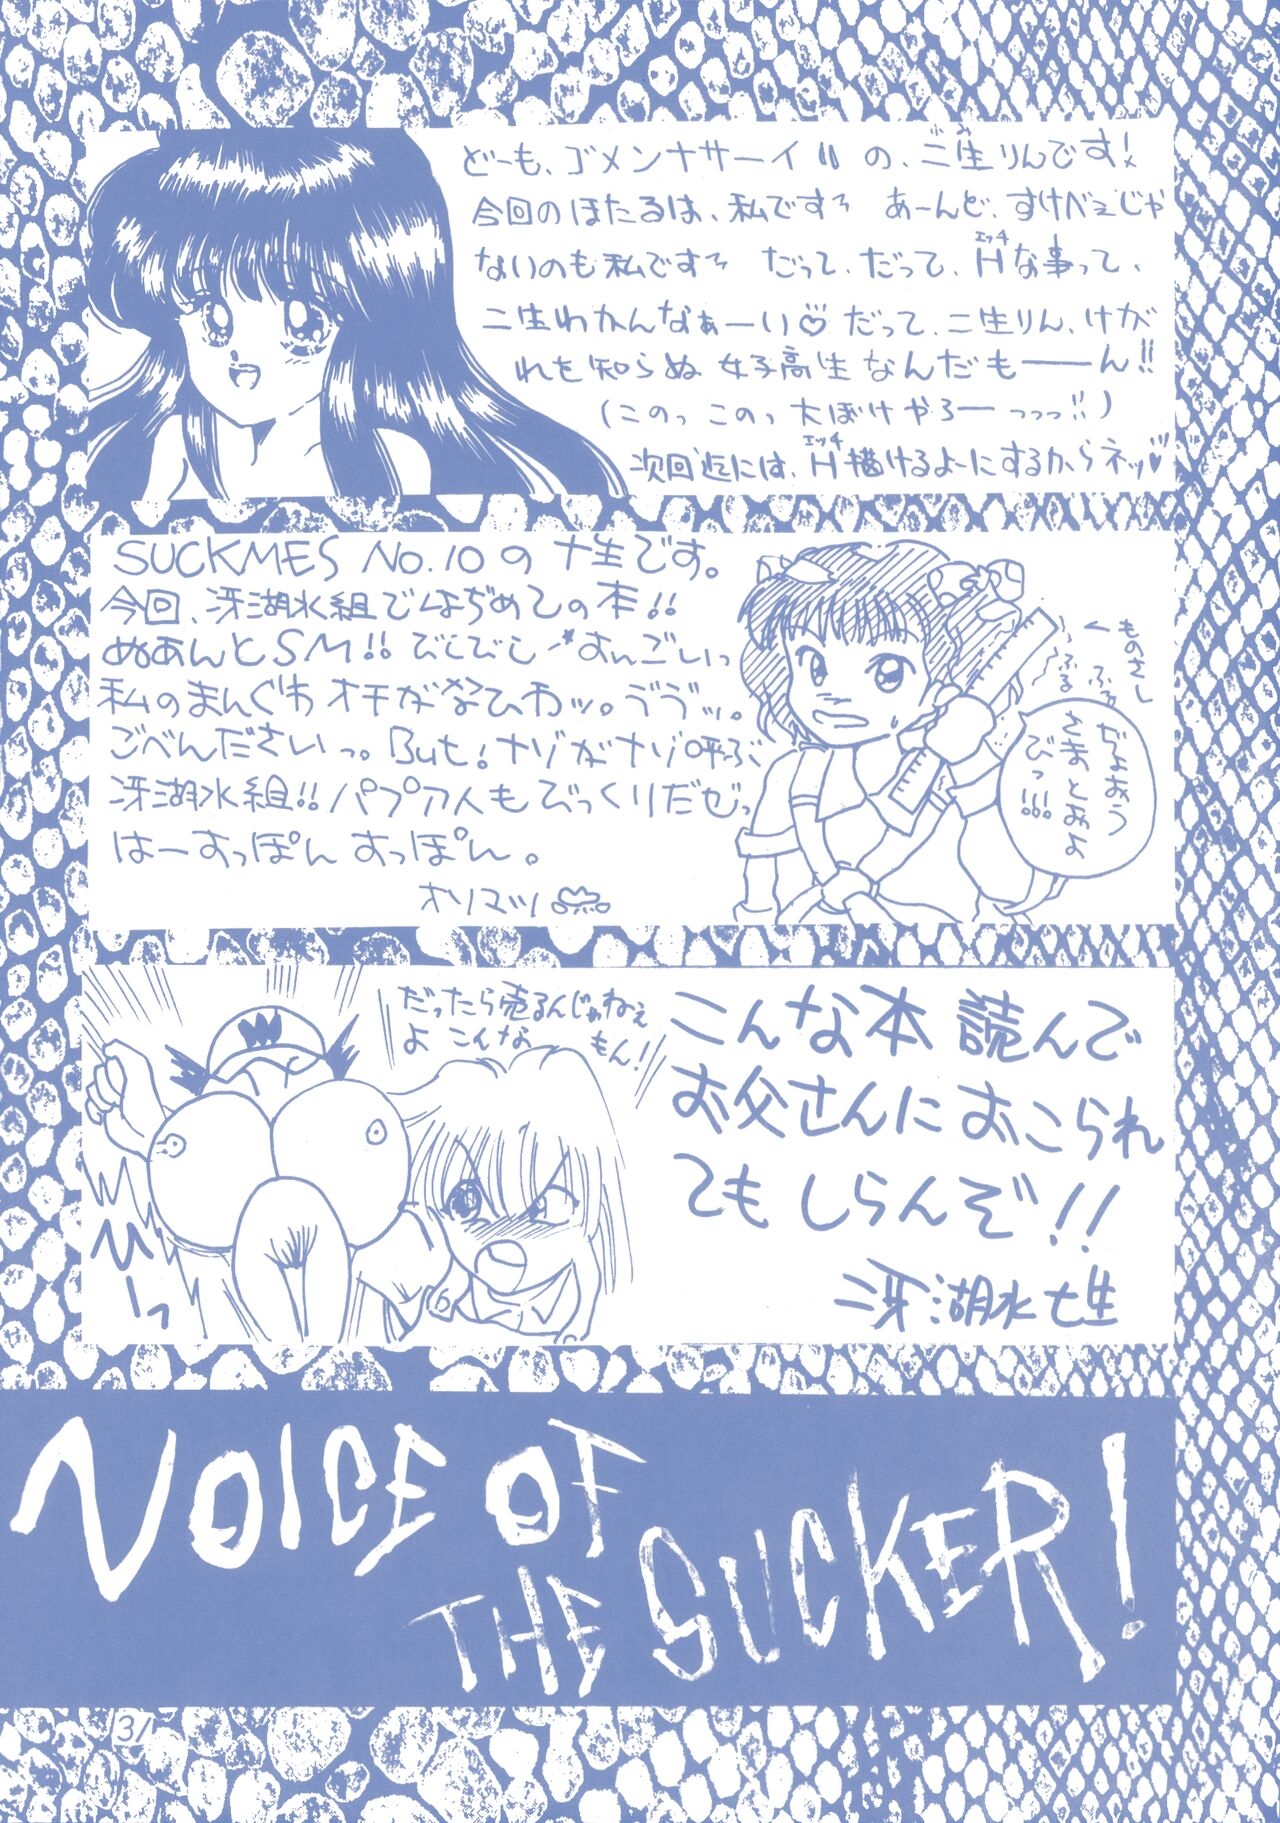 どーも、ゴメンナサーイ!! の、二生りんです!
今回のほたるは、私です あーんど、すけべぇじゃ
ないのも私です だって、だって、Hな事って、
エッチ
二生わかんなぁーい♡ だって、二生りん、けが
れを知らぬ 女子高生なんだもーーん!!
(このっ このっ 大ぼけやろーっっっ!!)
次回迄には、H描けるよーにするからネッ♥
エッチ
SUCKMES No.10の 十生です。
今回、冴湖水組ではぢめての本!!
ぬあんとSM!! びしびし すんごいっ
私のまんぐわ オチがなひわッ。ううッ。
ごべんださいっ。But! ナゾがナゾ呼ぶ
冴湖水組!! パプア人もびっくりだぜっ
はーすっぽん すっぽん。
オリマツ
ものさし
ふるふる
だぁおぅ
さまとみよ
びっ!!!
だったら売るんじゃねぇ
よ こんな もん!
ひーっ
こんな本 読んで
お父さんに おこられ
ても しらんぞ!!
冴湖水 七生
VOICE OF
THE SUCKER!
31